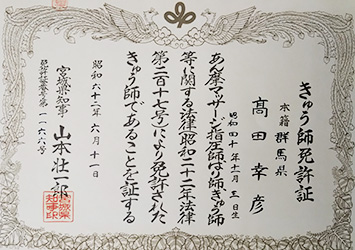 きゅう師免許証
本籍 群馬県
高田幸彦
昭和四十年十一月三日生
あん摩マッサージ指圧師はり師きゅう師
等に関する法律(昭和二十二年法律
第二百十七号)により免許された
きゅう師であることを証する
昭和六十三年六月十一日
宮城県知事 山本壮一郎
免許証番号第一一六六号